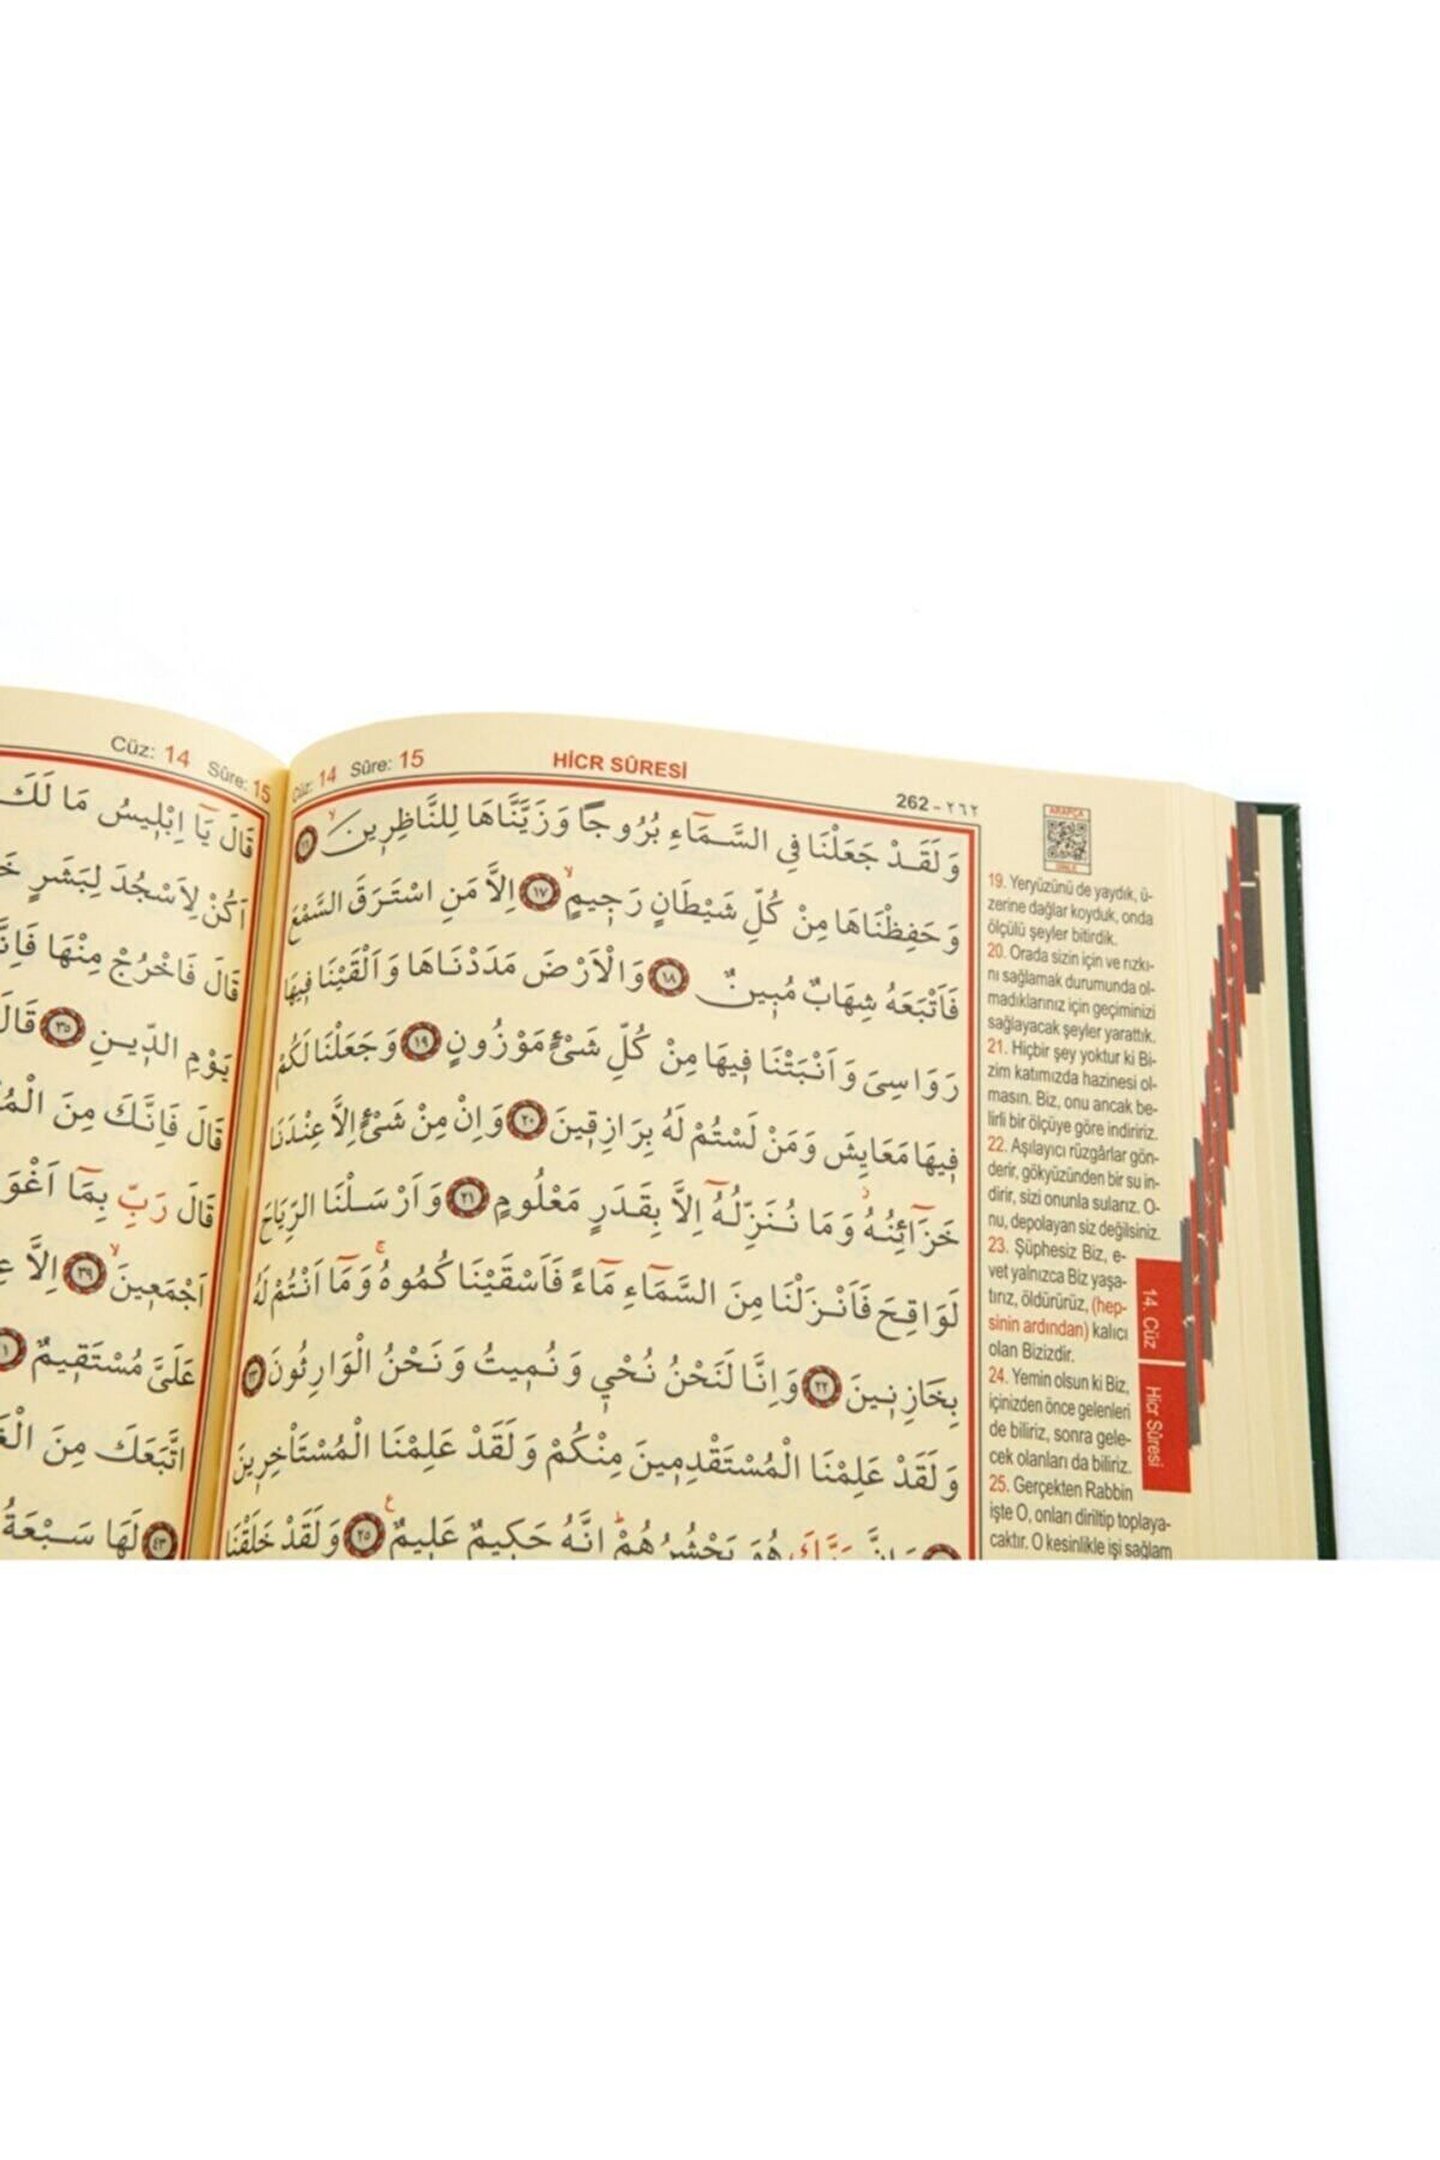 Cüz: 14 Sûre: 15
قَالَ يَٓا اِبْلٖيسُ مَا لَكَ
اَكُنْ لِاَسْجُدَ لِبَشَرٍ
قَالَ فَاخْرُجْ مِنْهَا
يَوْمِ الدّٖينِ ﴿٣٥﴾ قَالَ
قَالَ فَاِنَّكَ مِنَ
قَالَ رَبِّ بِمَٓا
اَجْمَعٖينَۙ ﴿٣٩﴾ اِلَّا
عَلَيَّ مُسْتَقٖيمٌ
اتَّبَعَكَ مِنَ
﴿٤٣﴾ لَهَا سَبْعَةُ
Cüz: 14 Sûre: 15 HİCR SÛRESİ 262 - ٢٦٢
وَلَقَدْ جَعَلْنَا فِي السَّمَٓاءِ بُرُوجًا وَزَيَّنَّاهَا لِلنَّاظِرٖينَۙ ﴿١٦﴾
وَحَفِظْنَاهَا مِنْ كُلِّ شَيْطَانٍ رَجٖيمٍۙ ﴿١٧﴾ اِلَّا مَنِ اسْتَرَقَ السَّمْعَ
فَاَتْبَعَهُ شِهَابٌ مُبٖينٌ ﴿١٨﴾ وَالْاَرْضَ مَدَدْنَاهَا وَاَلْقَيْنَا فٖيهَا
رَوَاسِيَ وَاَنْبَتْنَا فٖيهَا مِنْ كُلِّ شَيْءٍ مَوْزُونٍ ﴿١٩﴾ وَجَعَلْنَا لَكُمْ
فٖيهَا مَعَايِشَ وَمَنْ لَسْتُمْ لَهُ بِرَازِقٖينَ ﴿٢٠﴾ وَاِنْ مِنْ شَيْءٍ اِلَّا عِنْدَنَا
خَزَٓائِنُهُۘ وَمَا نُنَزِّلُهُٓ اِلَّا بِقَدَرٍ مَعْلُومٍ ﴿٢١﴾ وَاَرْسَلْنَا الرِّيَاحَ
لَوَاقِحَ فَاَنْزَلْنَا مِنَ السَّمَٓاءِ مَٓاءً فَاَسْقَيْنَاكُمُوهُۚ وَمَٓا اَنْتُمْ لَهُ
بِخَازِنٖينَ ﴿٢٢﴾ وَاِنَّا لَنَحْنُ نُحْيٖ وَنُمٖيتُ وَنَحْنُ الْوَارِثُونَ ﴿٢٣﴾
وَلَقَدْ عَلِمْنَا الْمُسْتَقْدِمٖينَ مِنْكُمْ وَلَقَدْ عَلِمْنَا الْمُسْتَأْخِرٖينَ
وَاِنَّ رَبَّكَ هُوَ يَحْشُرُهُمْؕ اِنَّهُ حَكٖيمٌ عَلٖيمٌ ﴿٢٥﴾ وَلَقَدْ خَلَقْنَا
ARAPÇA
DİNLE
19. Yeryüzünü de yaydık, ü-
zerine dağlar koyduk, onda
ölçülü şeyler bitirdik.
20. Orada sizin için ve rızkı-
nı sağlamak durumunda ol-
madıklarınız için geçiminizi
sağlayacak şeyler yarattık.
21. Hiçbir şey yoktur ki Bi-
zim katımızda hazinesi ol-
masın. Biz, onu ancak be-
lirli bir ölçüye göre indiririz.
22. Aşılayıcı rüzgârlar gön-
derir, gökyüzünden bir su in-
dirir, sizi onunla sularız. O-
nu, depolayan siz değilsiniz.
23. Şüphesiz Biz, e-
vet yalnızca Biz yaşa-
tırız, öldürürüz, (hep-
sinin ardından) kalıcı
olan Bizizdir.
24. Yemin olsun ki Biz,
içinizden önce gelenleri
de biliriz, sonra gele-
cek olanları da biliriz.
25. Gerçekten Rabbin
işte O, onları diriltip toplaya-
caktır. O kesinlikle işi sağlam
14. Cüz
Hicr Sûresi